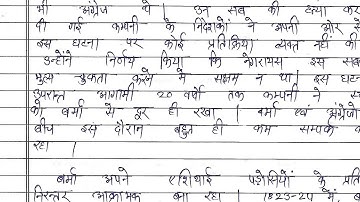 भी अंग्रेज थे। उन सब की हत्या कर
दी गई कम्पनी के निदेशकों ने अपनी ओर से
इस घटना पर कोई प्रतिक्रिया व्यक्त नहीं की
उन्होंने निर्णय किया कि नेगरायस इस सबका
मूल्य चुकता करने में सक्षम न था। इस घटना
उपरान्त आगामी 20 वर्षों तक कम्पनी ने
को बर्मा से दूर ही रखा। बर्मा एवं अंग्रेजों
बीच इस दौरान बहुत ही कम सम्पर्क
रहा।
बर्मा अपने एशियाई पड़ोसियों के प्रति
निरन्तर आक्रामक बना रहा। 1823-24 में,